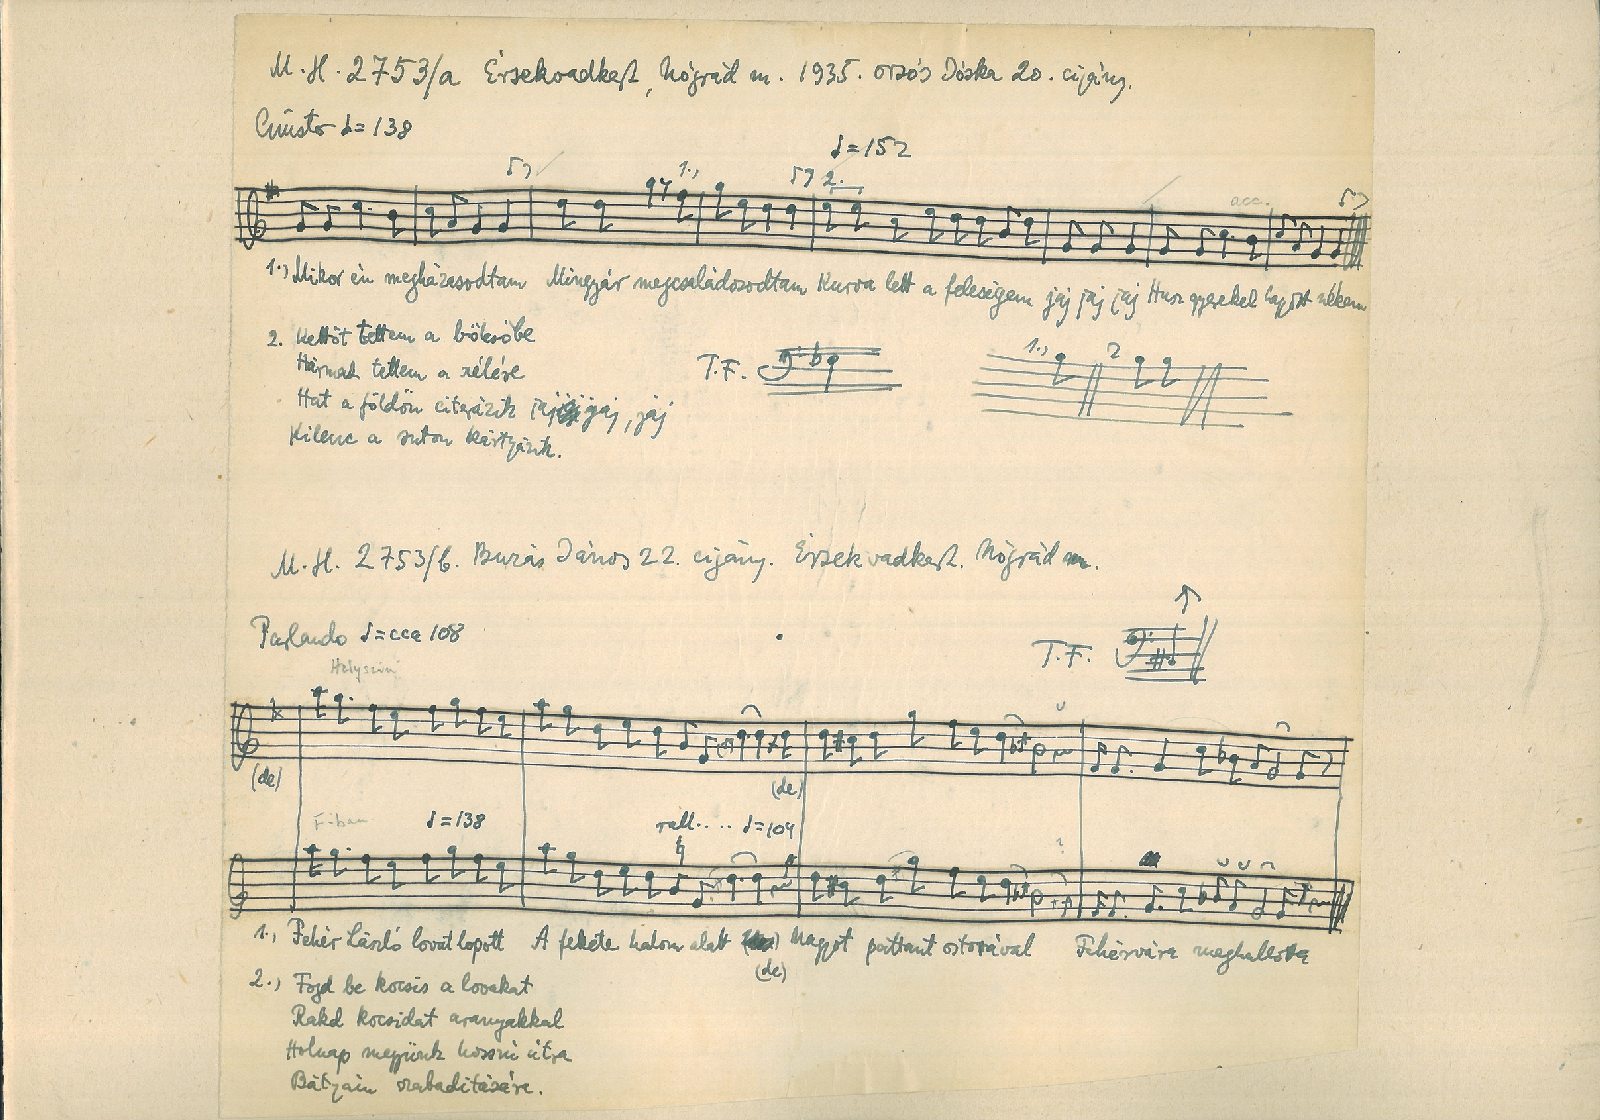 M.H. 2753/a Érsekvadkert, Nógrád m. 1935. Orsós Jóska 20. cigány.
Giusto ♩=138
♩=152
1.,
2.
acc.
1., Mikor én megházasodtam Mingyár megcsaládosodtam Kurva lett a feleségem jaj jaj jaj Husz gyereket hagyott nékem
2. Kettőt tettem a bölcsőbe
Hármat tettem a szélére
Hat a földön citerázik jaj jaj, jaj
Kilenc a suton kártyázik.
T.F.
1., 2
M.H. 2753/b. Buzás János 22. cigány. Érsekvadkert. Nógrád m.
Parlando ♩=cca 108
T.F.
Helyszíni
(de) (de)
F-ban ♩=138 rall.... ♩=104
1., Fehér László lovat lopott A fekete halom alatt (de) Nagyot pattant ostorával Fehérvára meghallotta
2., Fogd be kocsis a lovakat
Rakd kocsidat aranyakkal
Holnap megyünk hosszú útra
Bátyám szabadítására.